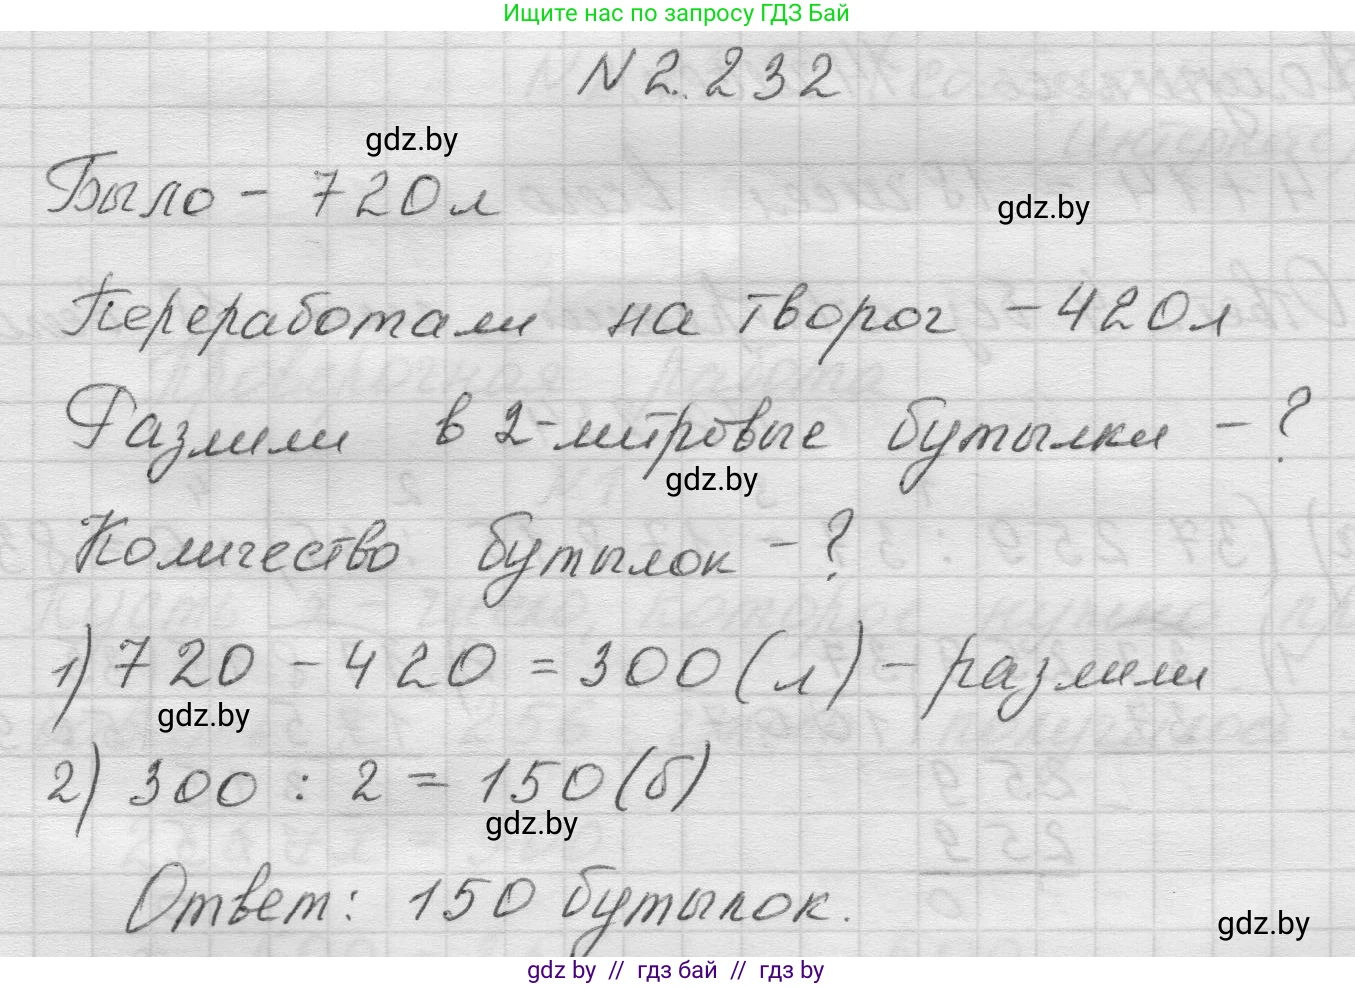 Ищите нас по запросу ГДЗ Бай
N 2.232
gdz.by
Было - 720 л
gdz.by
Переработали на творог - 420 л
Разлили в 2-литровые бутылки - ?
gdz.by
Количество бутылок - ?
1) 720 - 420 = 300 (л) - разлили
gdz.by
2) 300 : 2 = 150 (б)
gdz.by
Ответ: 150 бутылок.
gdz.by
gdz by // гдз бай // гдз by